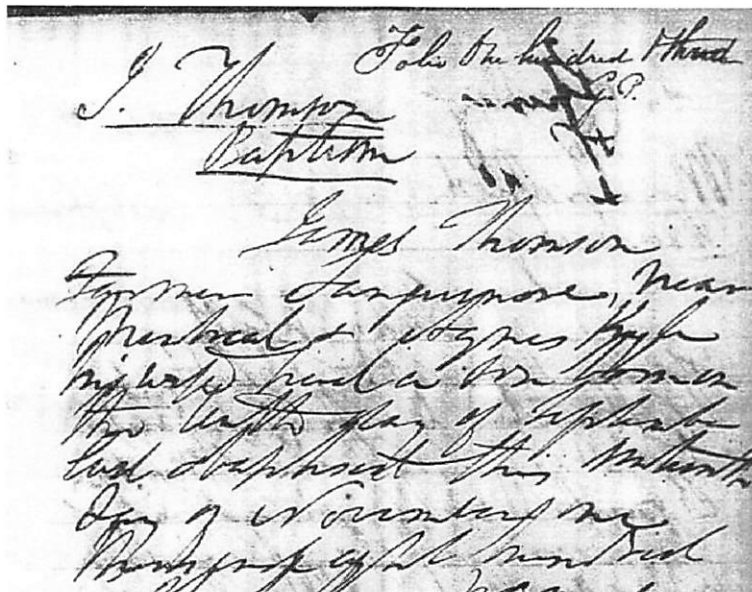 Folio One hundred & third
G.P.
J. Thomson
Baptism
James Thomson
Farmer Longue Pointe, near
Montreal & Agnes
his wife had a Son born on
the tenth day of September
last & baptised this
day of November one
thousand eight hundred